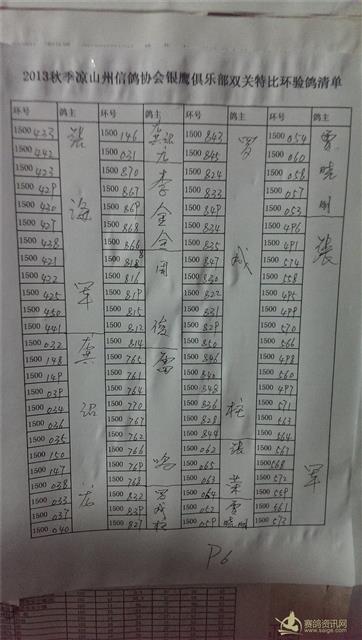 2013秋季凉山州信鸽协会银鹰俱乐部双关特比环验鸽清单
环号 鸽主 环号 鸽主 环号 鸽主 环号 鸽主
1500 423 張 1500 146 1500 843 罗 1500 054 雷
1500 442 1500 031 1500 845 1500 060
1500 423 1500 870 李 1500 824 1500 058 晓
1500 429 1500 867 1500 833 1500 057
1500 420 海 1500 869 金 1500 849 1500 053 明
1500 1500 868 全 1500 834 1500 496
1500 428 1500 866 1500 835 1500 491 張
1500 421 1500 818 周 1500 847 成 1500 574
1500 422 1500 816 1500 830 1500 558
1500 425 軍 1500 819 1500 822 1500 495
1500 450 1500 815 1500 831 1500 499
1500 441 1500 812 俊 1500 829 1500 570
1500 032 龚 1500 814 1500 850 1500 566
1500 148 1500 765 雷 1500 846 1500 498
1500 149 1500 761 1500 840 1500 560
1500 039 1500 764 1500 848 1500 497
1500 034 绍 1500 770 1500 836 柱 1500 571
1500 036 1500 767 1500 828 1500 563
1500 035 1500 762 1500 844 1500 564
1500 150 1500 766 1500 062 張 1500 567
1500 147 1500 769 鸣 1500 065 1500 568 軍
1500 038 1500 768 1500 063 荣 1500 572
1500 033 1500 832 罗 1500 064 1500 569
1500 037 1500 839 成 1500 052 雷 1500 561
1500 040 1500 827 柱 1500 059 晓明 1500 573
P6
赛鸽资讯网
www.saige.com